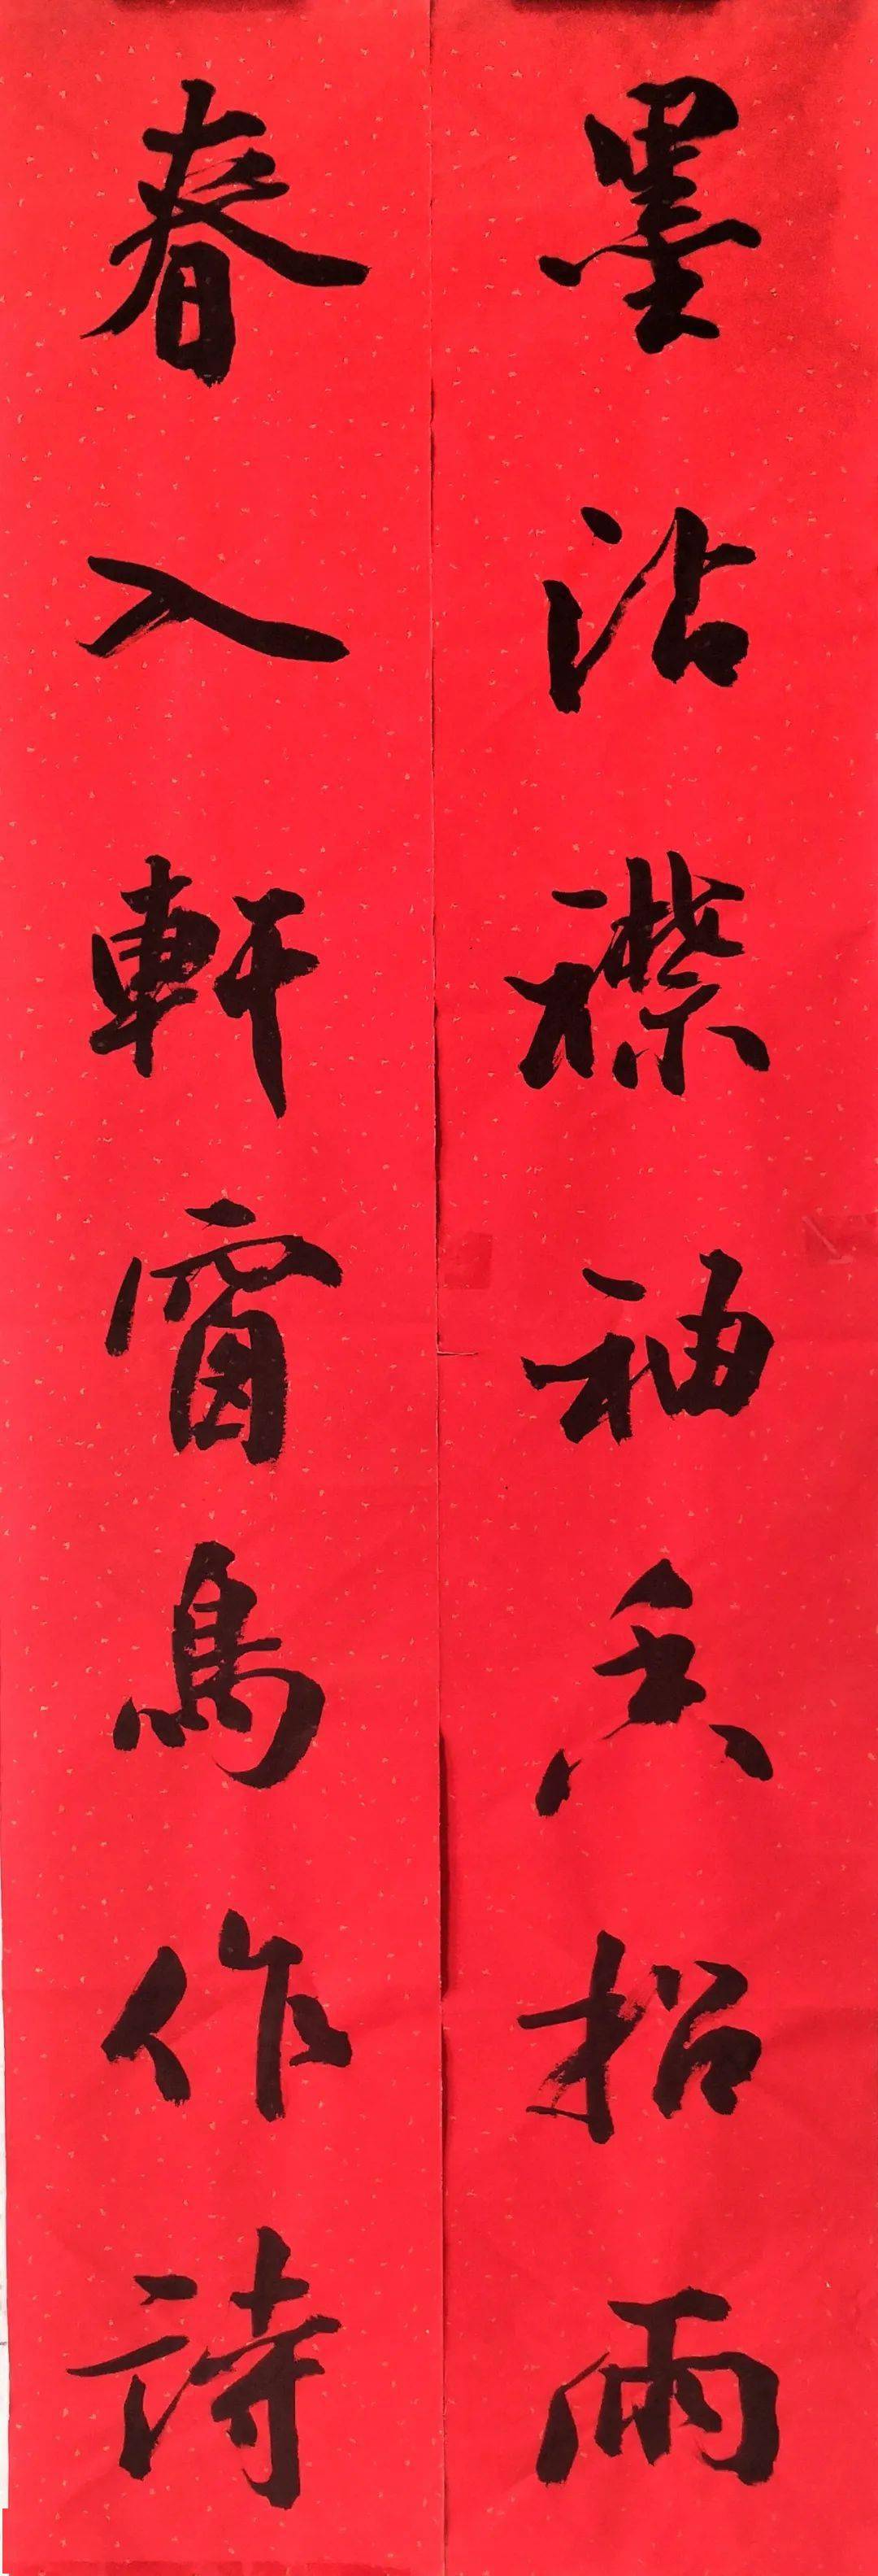 墨沾襟袖招雨
春入軒窗鳥作詩